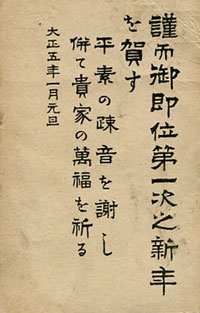 謹而御即位第一次之新年
を賀す
平素の疎音を謝し
併て貴家の萬福を祈る
大正五年一月元旦